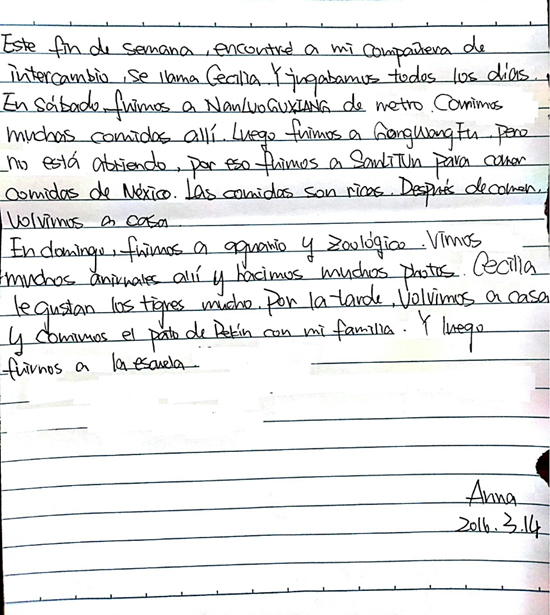 Este fin de semana, encontré a mi compañera de
intercambio, se llama Cecilia. Y jugabamos todos los días.
En sábado, fuimos a NANLUOGUXIANG de metro. Comimos
muchas comidas allí. Luego fuimos a GongWangFu, pero
no está abriendo, por eso fuimos a SANLITUN para comer
comidas de México. Las comidas son ricas. Después de comer,
volvimos a casa.
En domingo, fuimos a aquario y zoológico. Vimos
muchos animales allí y hacimos muchos photos. Cecilia
le gustan los tigres mucho. Por la tarde, volvimos a casa
y comimos el pato de Pekín con mi familia. Y luego
fuimos a la escuela.
Anna
2016.3.14